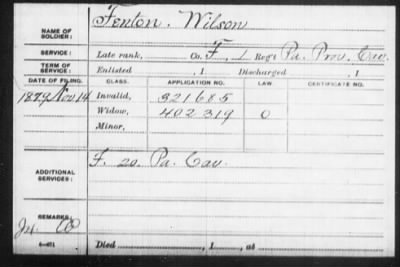 NAME OF SOLDIER: Fenton, Wilson
SERVICE: Late rank, Co. F, 1 Reg't Pa. Prov. Cav.
TERM OF SERVICE: Enlisted , 1 Discharged , 1
DATE OF FILING. CLASS. APPLICATION NO. LAW. CERTIFICATE NO.
1879 Nov 14 Invalid, 321685
Widow, 402319 O
Minor,
ADDITIONAL SERVICES: F. 20. Pa. Cav.
REMARKS:
Died , 1 , at